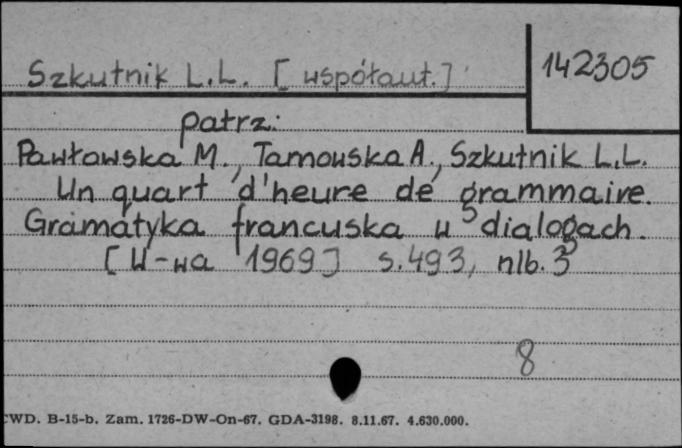 Szkutnik L.L. [współaut.]
142305
patrz:
Pawłowska M., Tarnowska A., Szkutnik L.L.
Un quart d'heure de grammaire.
Gramatyka francuska w dialogach.
[W-wa 1969] s.493, nlb. 3
8
CWD. B-15-b. Zam. 1726-DW-On-67. GDA-3198. 8.11.67. 4.630.000.